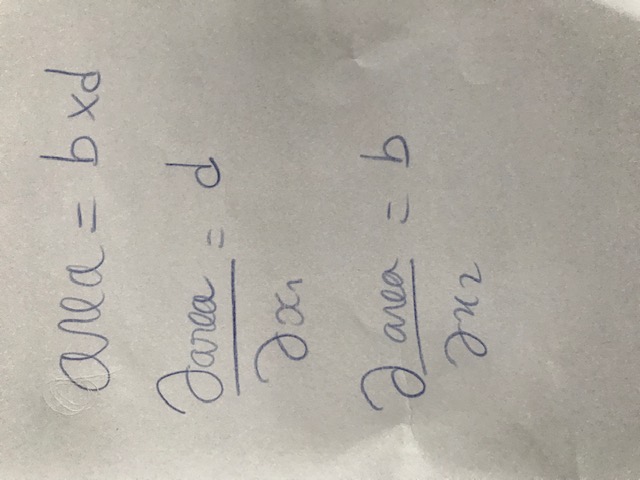 area = b x d
∂area / ∂x₁ = d
∂ area / ∂x₂ = b